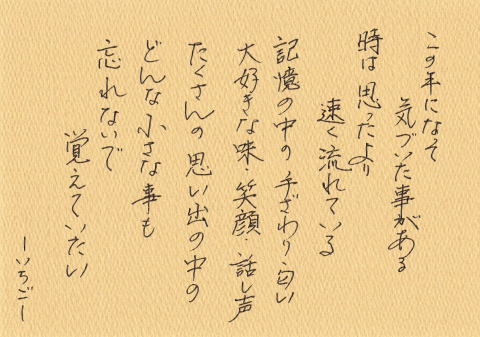 この年になって
気づいた事がある
時は思ったより
速く流れている
記憶の中の手ざわり・匂い
大好きな味・笑顔・話し声
たくさんの思い出の中の
どんな小さな事も
忘れないで
覚えていたい
ーいちごー